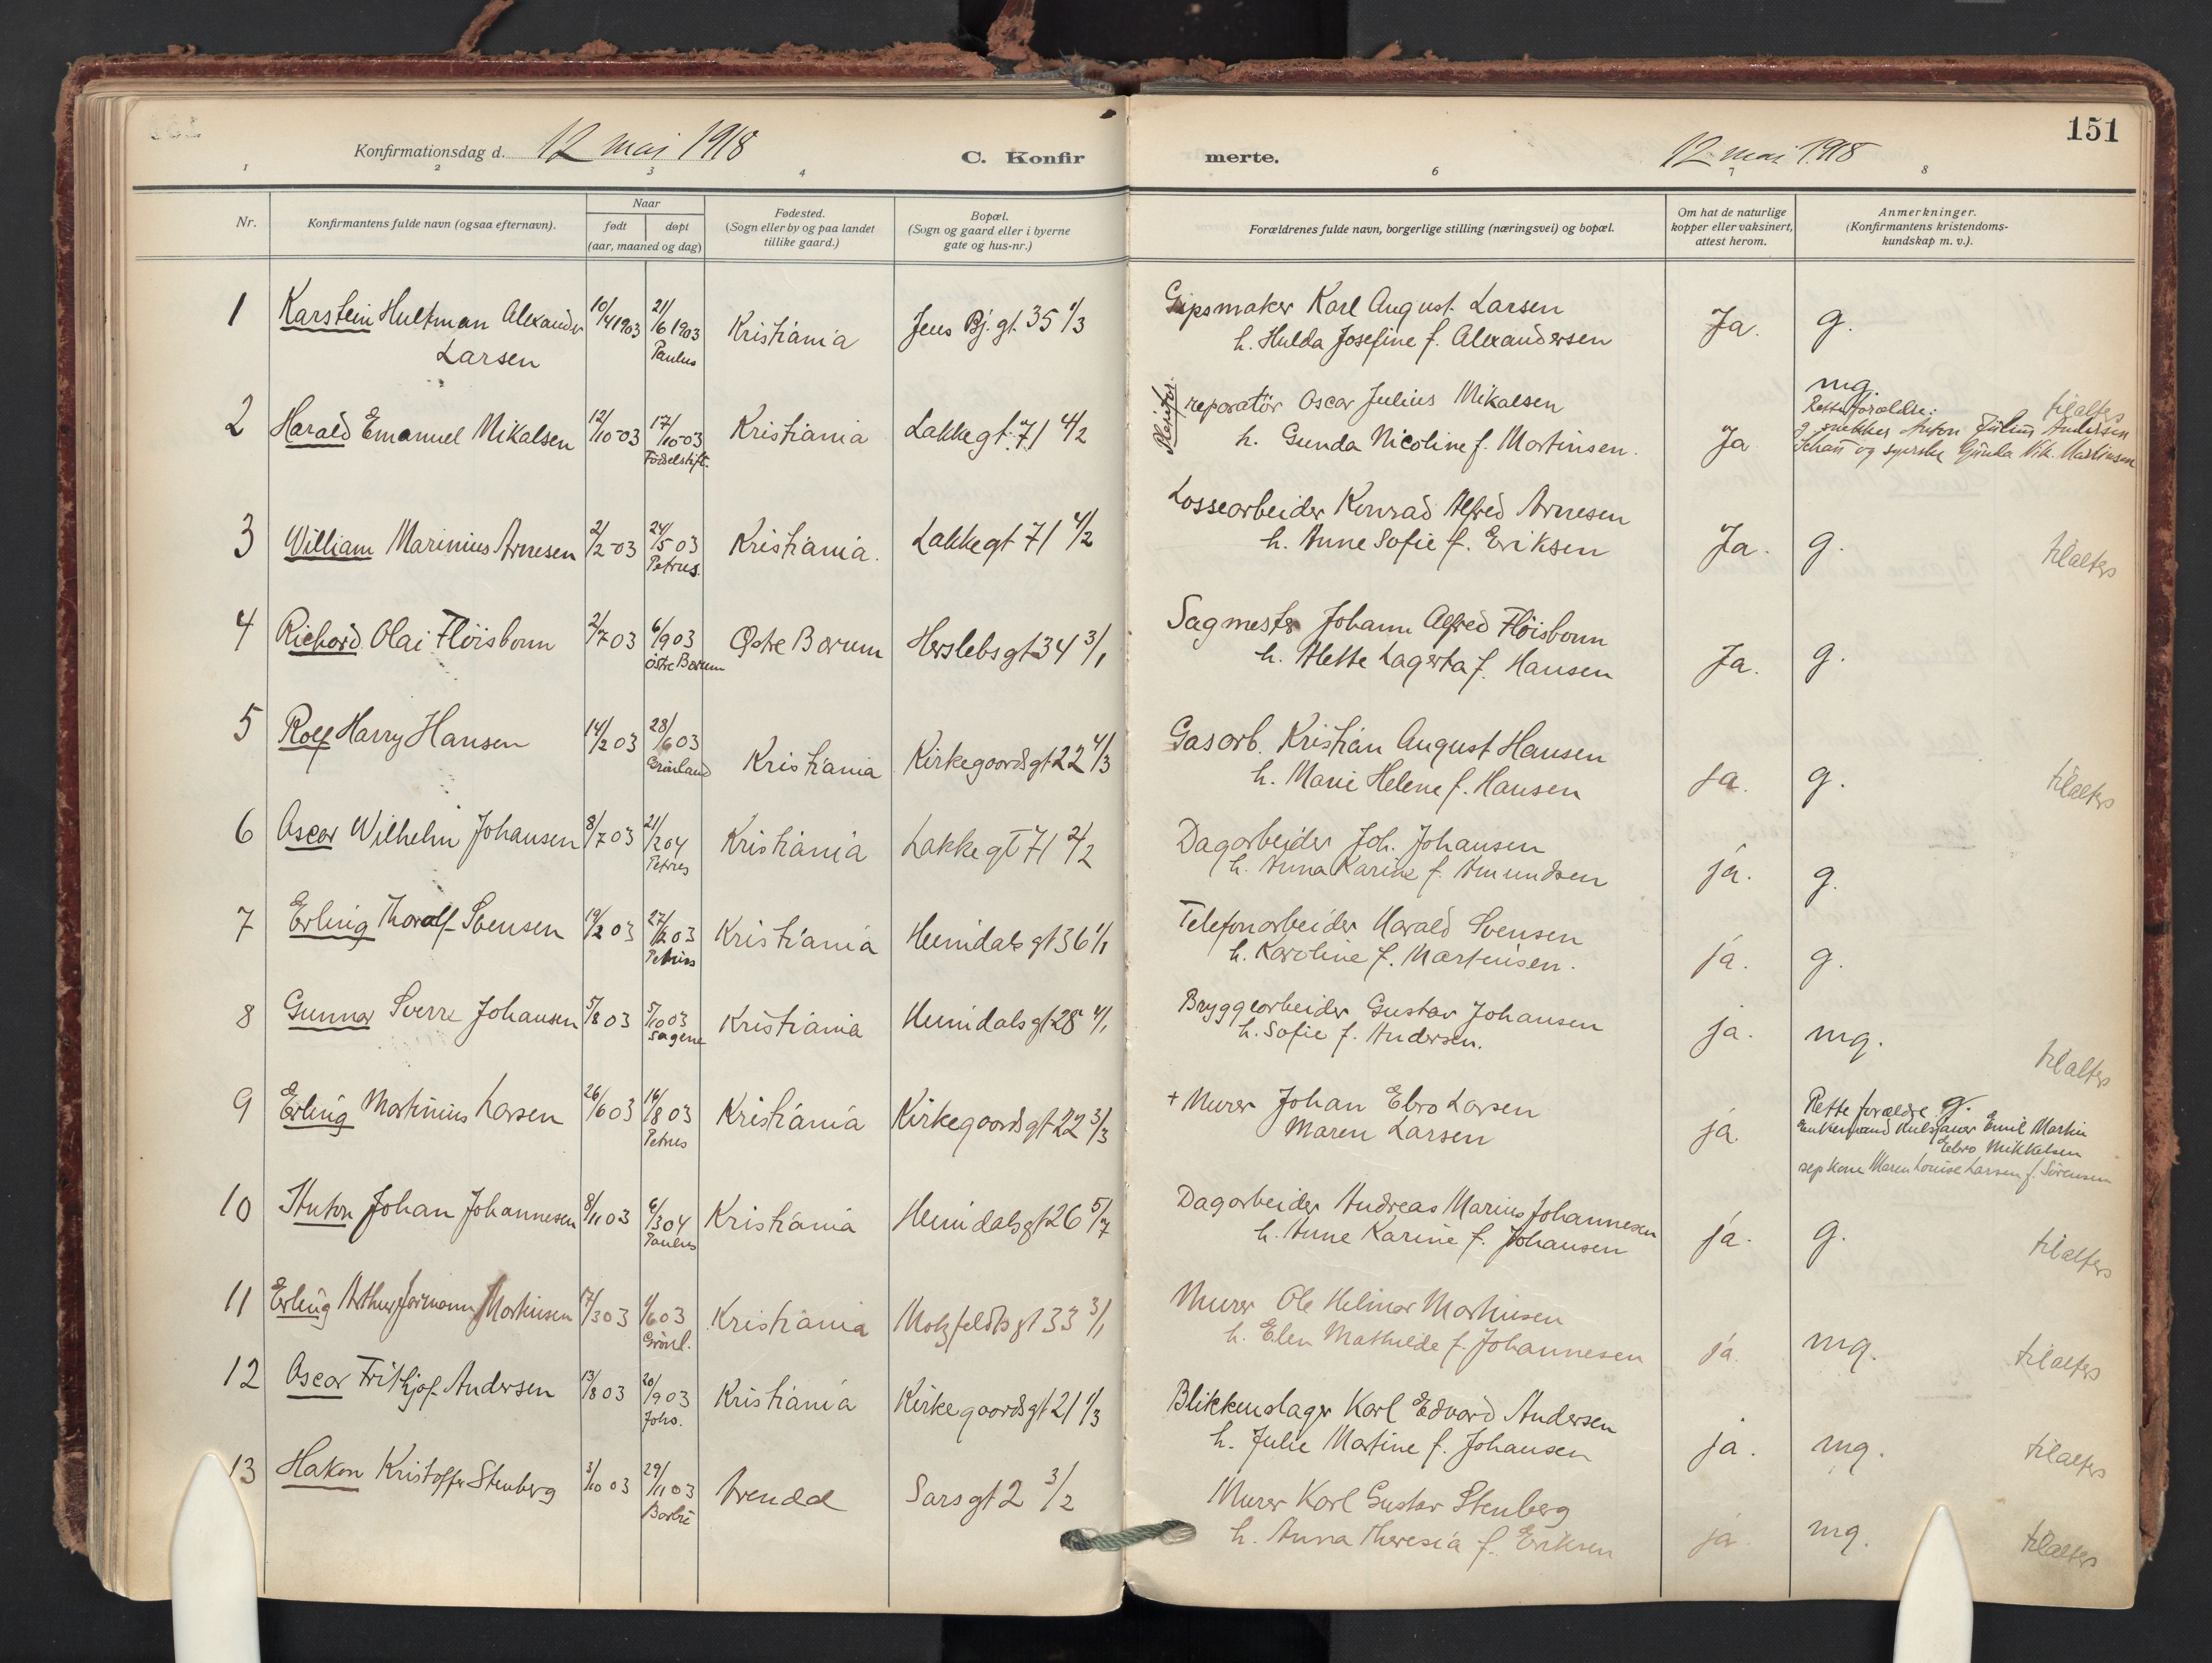 Konfirmationsdag d. 12 mai 1918
C. Konfirmerte.
12 mai 1918
151
1 2 3 4 6 7 8
Nr.
Konfirmantens fulde navn (ogsaa efternavn).
Naar
født døpt
(aar, maaned og dag)
Fødested.
(Sogn eller by og paa landet
tillike gaard.)
Bopæl.
(Sogn og gaard eller i byerne
gate og hus-nr.)
Forældrenes fulde navn, borgerlige stilling (næringsvei) og bopæl.
Om hat de naturlige
kopper eller vaksinert,
attest herom.
Anmerkninger.
(Konfirmantens kristendoms-
kundskap m. v.).
1 Karstein Hultman Alexander 10/4 1903 21/6 1903 Kristiania Jens Bj. gt. 35 1/3
Larsen Paulus
Gipsmaker Karl August Larsen Ja. g.
h. Hulda Josefine f. Alexandersen
2 Harald Emanuel Mikalsen 12/10-03 17/10-03 Kristiania Lakkegt. 71 4/2
Födselstift.
reparatör Oscar Julius Mikalsen Ja mg.
h. Gunda Nicoline f. Martinsen.
Rette forældre: tilalters
snekker Anton Julius Andersen
og syerske Gunda Nik. Martinsen
3 William Marinius Arnesen 2/2-03 24/5 03 Kristiania. Lakkegt 71 4/2
Petrus.
Lossearbeider Konrad Alfred Arnesen
h. Anne Sofie f. Eriksen Ja. g. tilalters
4 Richard Olai Flöisbonn 2/7 03 6/9 03 Østre Bærum Herslebsgt 34 3/1
Östre Bærum
Sagmester Johann Alfred Flöisbonn
h. Mette Lagerta f. Hansen Ja. g.
5 Rolf Harry Hansen 14/2 03 28/6 03 Kristiania Kirkegaardsgt 22 4/3
Grönland
Gasarb. Kristian August Hansen
h. Marie Helene f. Hansen ja. g. tilalters
6 Oscar Wilhelm Johansen 8/7 03 21/2 04 Kristiania Lakkegt 71 2/2
Petrus
Dagarbeider Joh. Johansen
h. Anna Karine f. Amundsen ja. g.
7 Erling Thoralf Svensen 19/2 03 27/12 03 Kristiania Heimdalsgt 36 1/1
Petrus
Telefonarbeider Harald Svensen
h. Karoline f. Martinsen. ja. g.
8 Gunnar Sverre Johansen 5/8 03 5/10 03 Kristiania Heimdalsgt 28 4/1
Sagene
Bryggearbeider Gustav Johansen
h. Sofie f. Andersen. ja. mg. tilalters
9 Erling Martinius Larsen 26/6 03 16/8 03 Kristiania Kirkegaardsgt 22 3/3
Petrus
+ Murer Johan Ebro Larsen
Maren Larsen ja g.
Rette forældre
Enkemand Emil Martin
Ebro Mikkelsen
sep kone Maren Louise Larsen f. Sörensen
10 Anton Johan Johannesen 8/11 03 6/3 04 Kristiania Heimdalsgt 26 5/7
Paulus
Dagarbeider Andreas Marius Johannesen
h. Anne Karine f. Johansen ja. g. tilalters
11 Erling Arthur Jormann Martinsen 17/3 03 1/6 03 Kristiania Motzfeldtsgt 33 3/1
Grönl.
Murer Ole Hilmar Martinsen
h. Elen Mathilde f. Johannesen ja. mg. tilalters
12 Oscar Frithjof Andersen 13/8 03 20/9 03 Kristiania Kirkegaardsgt 21 1/3
Johs.
Blikkenslager Karl Edvard Andersen
h. Julie Martine f. Johansen ja. mg. tilalters
13 Hakon Kristoffer Stenberg 3/10 03 29/11 03 Arendal Sarsgt 2 3/2
Barbu
Murer Karl Gustav Stenberg
h. Anna Theresia f. Eriksen ja. mg. tilalters